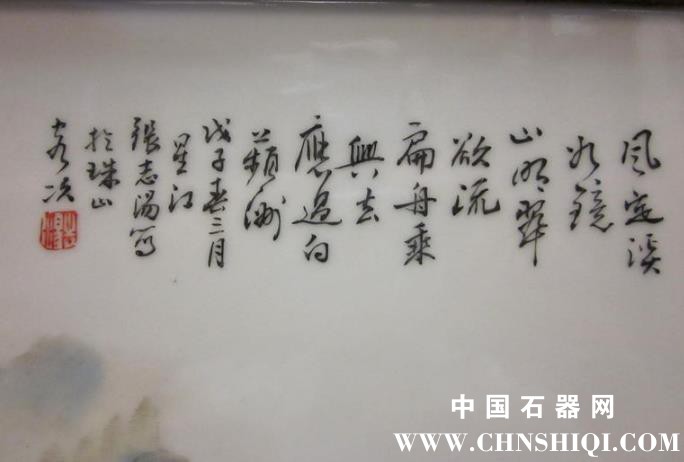 風定溪
如鏡
山明翠
欲流
扁舟乘
興去
應過白
蘋洲
戊子春三月
星江
張志湯寫
於珠山
客次
中国石器网
WWW.CHNSHIQI.COM